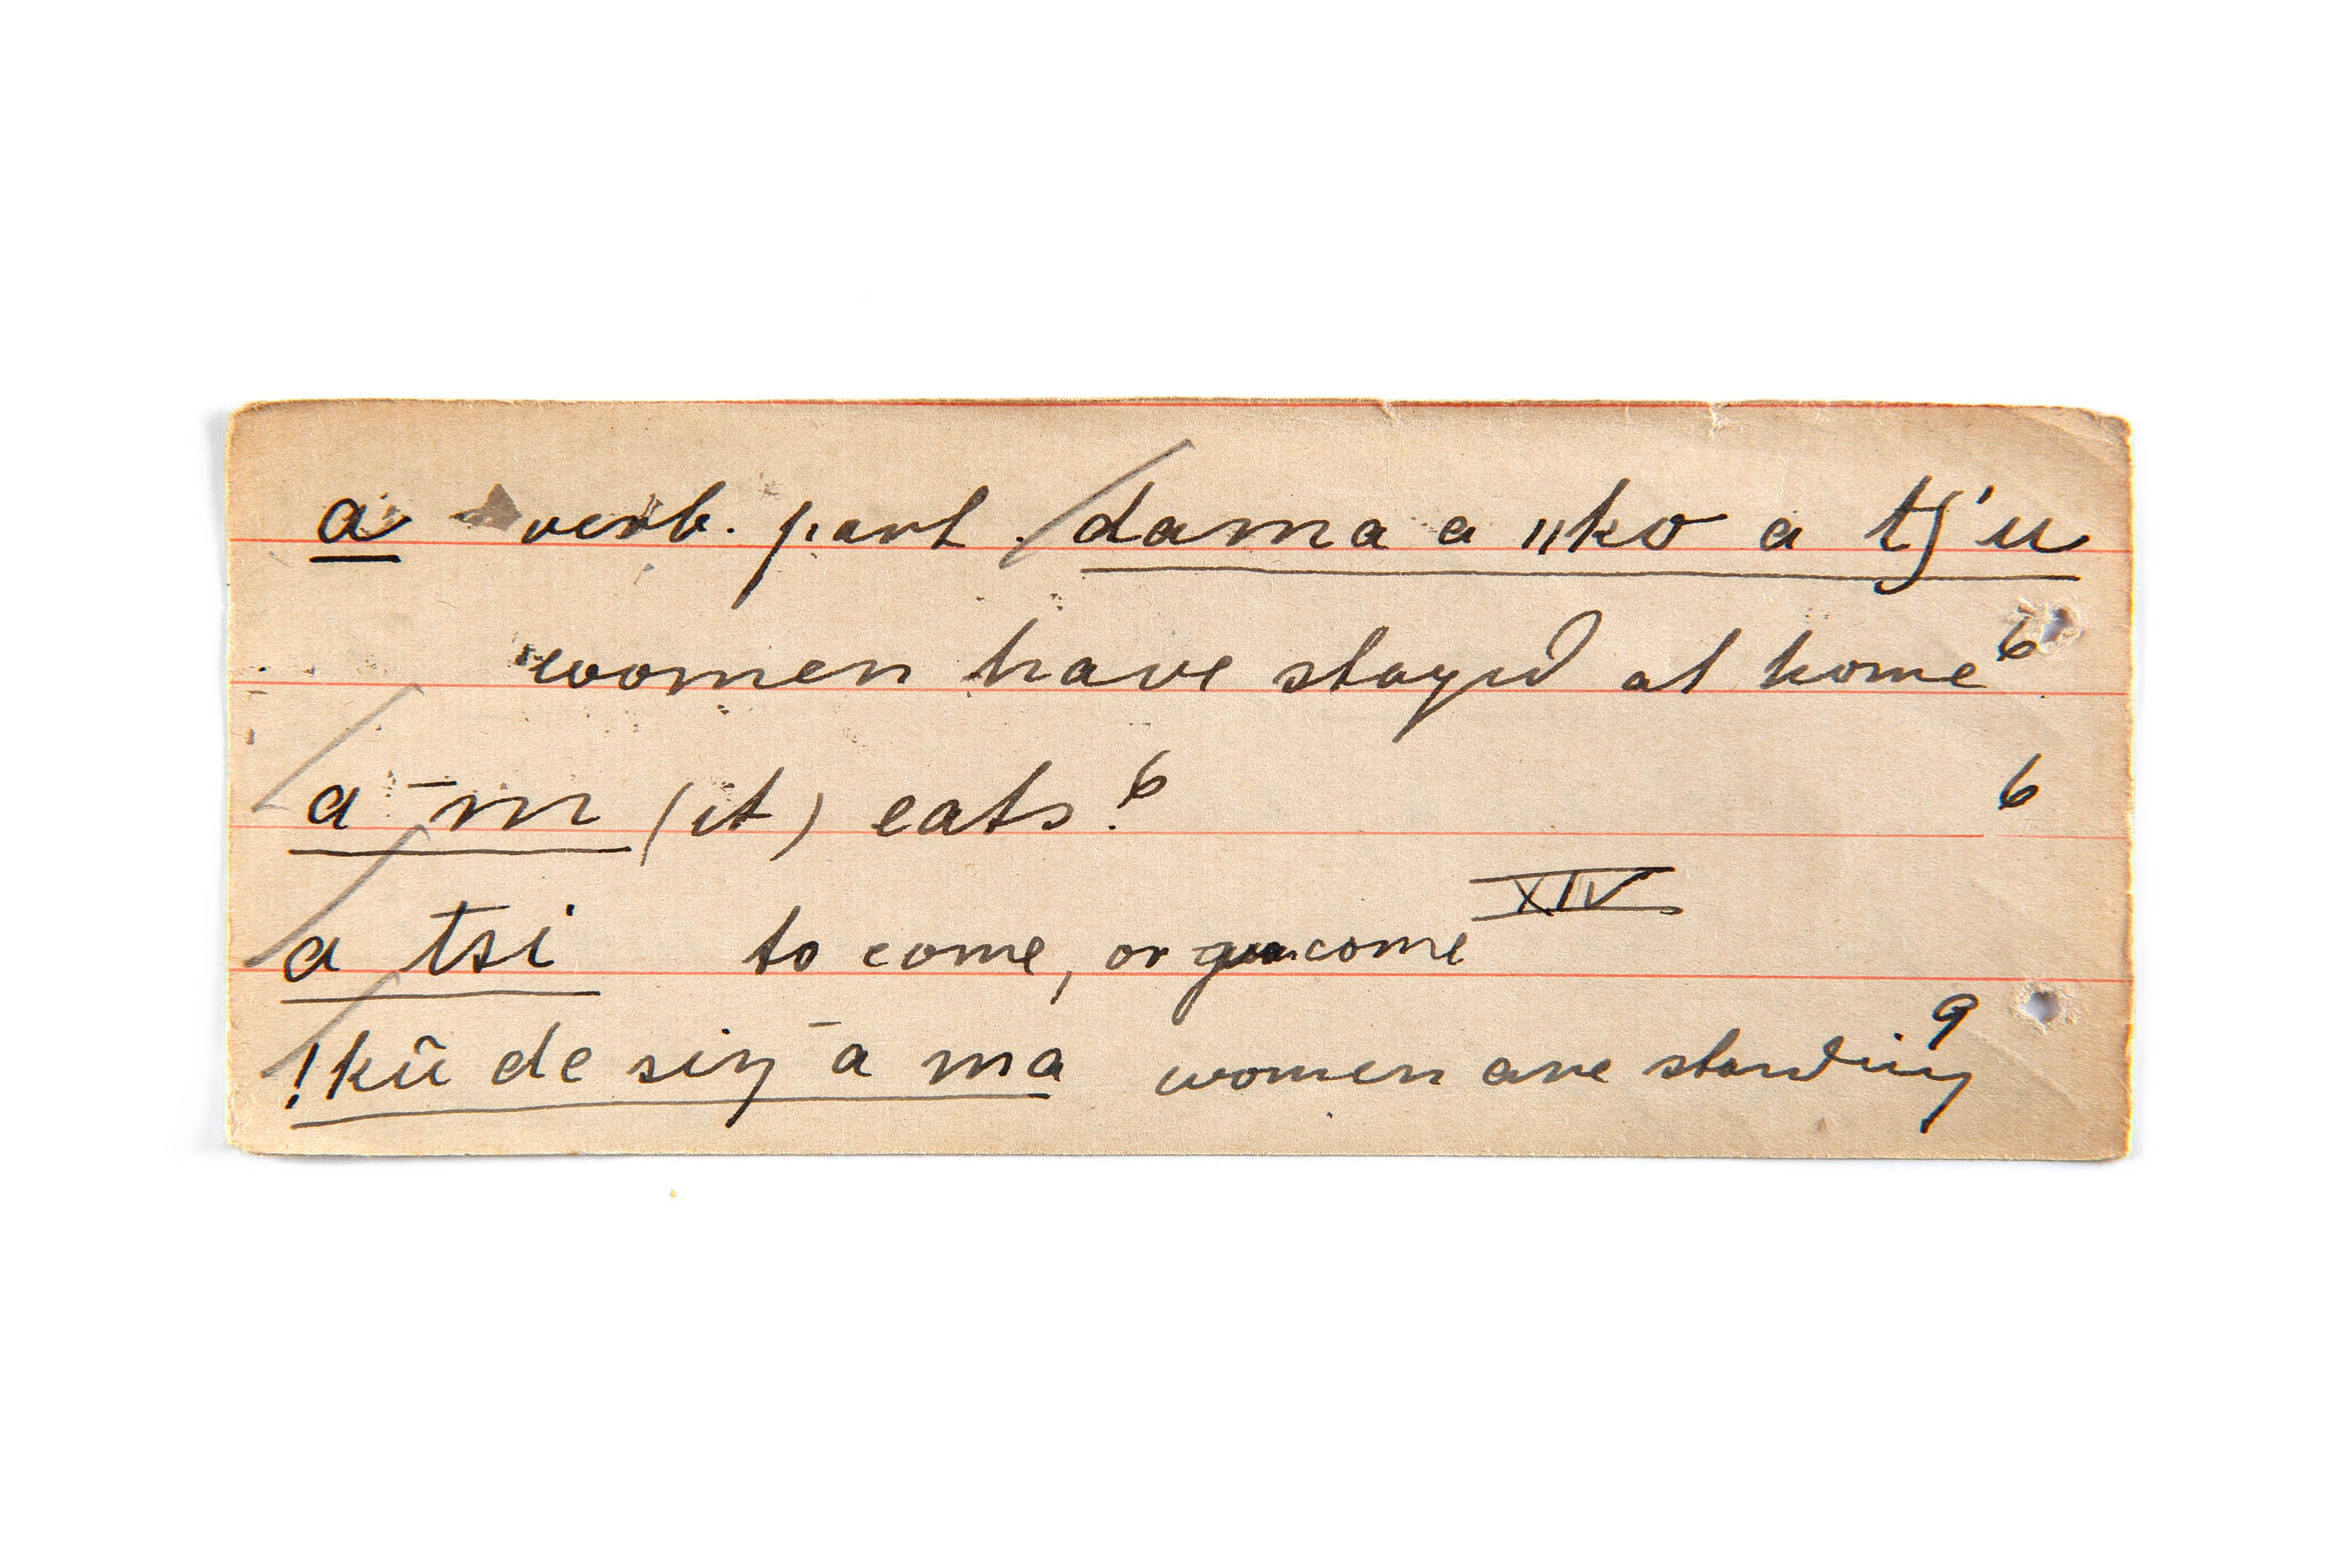 a verb. part. dama a ǁko a tʃ'u
women have stayed at home 6
a ‾m (it) eats. 6 6
a tsi to come, or come XIV
!kũ de siŋ ‾a ma women are standing 9